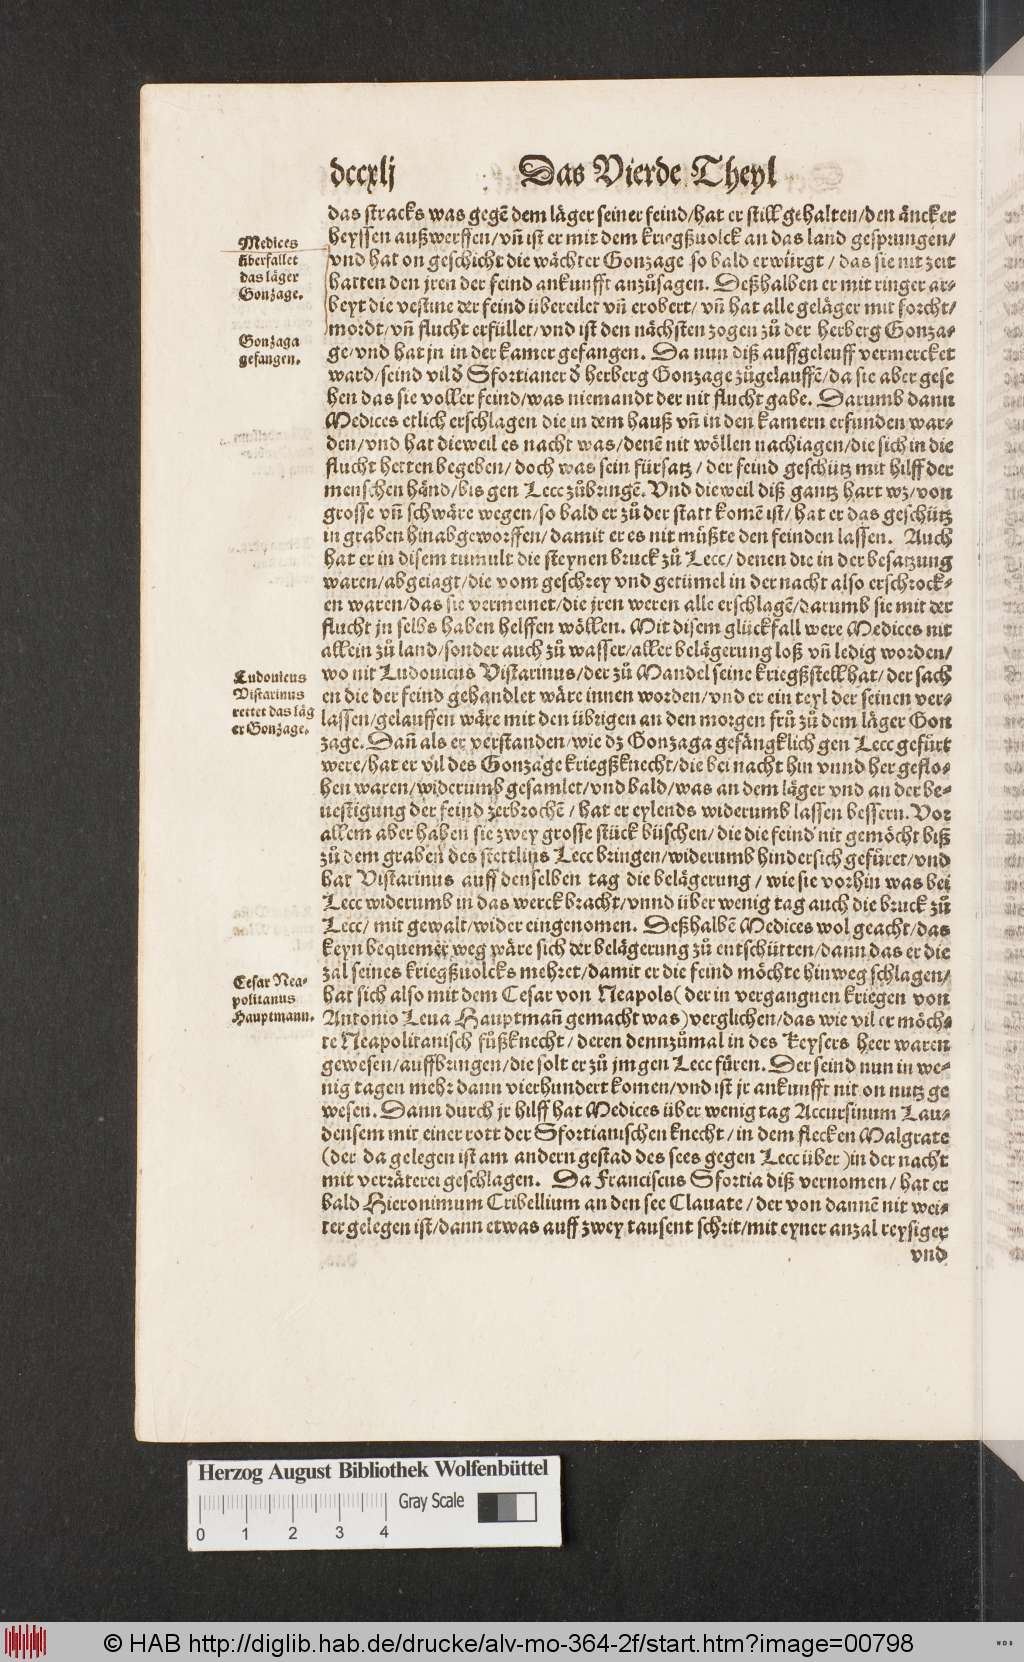 dccxlj Das Vierde Theyl
das stracks was gegẽ dem läger seiner feind/hat er still gehalten/den äncker
heyssen außwerffen/vñ ist er mit dem kriegßuolck an das land gesprungen/
vnd hat on geschicht die wächter Gonzage so bald erwürgt / das sie nit zeit
hatten den jren der feind ankunfft anzůsagen. Deßhalben er mit ringer ar⸗
beyt die vestine der feind übereilet vñ erobert/ vñ hat alle geläger mit forcht/
mordt/vñ flucht erfüllet/vnd ist den nächsten zogen zů der herberg Gonza⸗
ge/vnd hat jn in der kamer gefangen. Da nun diß auffgeleuff vermercket
ward/seind vil d̕ Sfortianer d̕ herberg Gonzage zůgelauffẽ/da sie aber gese
hen das sie voller feind/was niemandt der nit flucht gabe. Darumb dann
Medices etlich erschlagen die in dem hauß vñ in den kamern erfunden war⸗
den/vnd hat dieweil es nacht was/denẽ nit wöllen nachiagen/die sich in die
flucht hetten begeben/ doch was sein fürsatz / der feind geschütz mit hilff der
menschen händ/bis gen Lecc zůbringẽ. Vnd dieweil diß gantz hart wz/von
grosse vñ schwäre wegen/so bald er zů der statt komẽ ist/ hat er das geschütz
in graben hinabgeworffen/damit er es nit můßte den feinden lassen. Auch
hat er in disem tumult die steynen bruck zů Lecc/ denen die in der besatzung
waren/abgeiagt/die vom geschrey vnd getümel in der nacht also erschrock⸗
en waren/das sie vermeinet/die jren weren alle erschlagẽ/darumb sie mit der
flucht jn selbs haben helffen wöllen. Mit disem glückfall were Medices nit
allein zů land/sonder auch zů wasser/aller belägerung loß vñ ledig worden/
wo nit Ludouicus Vistarinus/der zů Mandel seine kriegßstell hat/der sach
en die der feind gehandlet wäre innen worden/vnd er ein teyl der seinen ver⸗
lassen/gelauffen wäre mit den übrigen an den morgen frů zů dem läger Gon
zage. Dañ als er verstanden/wie dz Gonzaga gefängklich gen Lecc gefürt
were/hat er vil des Gonzage kriegßknecht/die bei nacht hin vnnd her geflo⸗
hen waren/widerumb gesamlet/vnd bald/was an dem läger vnd an der be⸗
uestigung der feind zerbrochẽ / hat er eylends widerumb lassen bessern. Vor
allem aber haben sie zwey grosse stück büschen/die die feind nit gemöcht biß
zů dem graben des stettlins Lecc bringen/widerumb hindersich gefüret/vnd
hat Vistarinus auff denselben tag die belägerung / wie sie vorhin was bei
Lecc widerumb in das werck bracht/vnnd über wenig tag auch die bruck zů
Lecc/ mit gewalt/wider eingenomen. Deßhalbẽ Medices wol geacht/das
keyn bequemer weg wäre sich der belägerung zů entschütten/dann das er die
zal seines kriegßuolcks mehret/damit er die feind möchte hinweg schlagen/
hat sich also mit dem Cesar von Neapols (der in vergangnen kriegen von
Antonio Leua Hauptmañ gemacht was) verglichen/das wie vil er möch⸗
te Neapolitanisch fůßknecht / deren dennzůmal in des Keysers heer waren
gewesen/auffbringen/die solt er zů jm gen Lecc füren. Der seind nun in we⸗
nig tagen mehr dann vierhundert komen/vnd ist jr ankunfft nit on nutz ge
wesen. Dann durch jr hilff hat Medices über wenig tag Accursinum Lau⸗
densem mit einer rott der Sfortianischen knecht/ in dem flecken Malgrate
(der da gelegen ist am andern gestad des sees gegen Lecc über) in der nacht
mit verräterei geschlagen. Da Franciscus Sfortia diß vernomen/ hat er
bald Hieronimum Cribellium an den see Clauate / der von dannẽ nit wei⸗
ter gelegen ist/dann etwas auff zwey tausent schrit/mit eyner anzal reysiger
vnd
Medices
überfallet
das läger
Gonzage.
Gonzaga
gefangen.
Ludouicus
Vistarinus
rettet das läg
er Gonzage.
Cesar Nea⸗
politanus
Hauptmann.
Herzog August Bibliothek Wolfenbüttel
Gray Scale
0 1 2 3 4
© HAB http://diglib.hab.de/drucke/alv-mo-364-2f/start.htm?image=00798